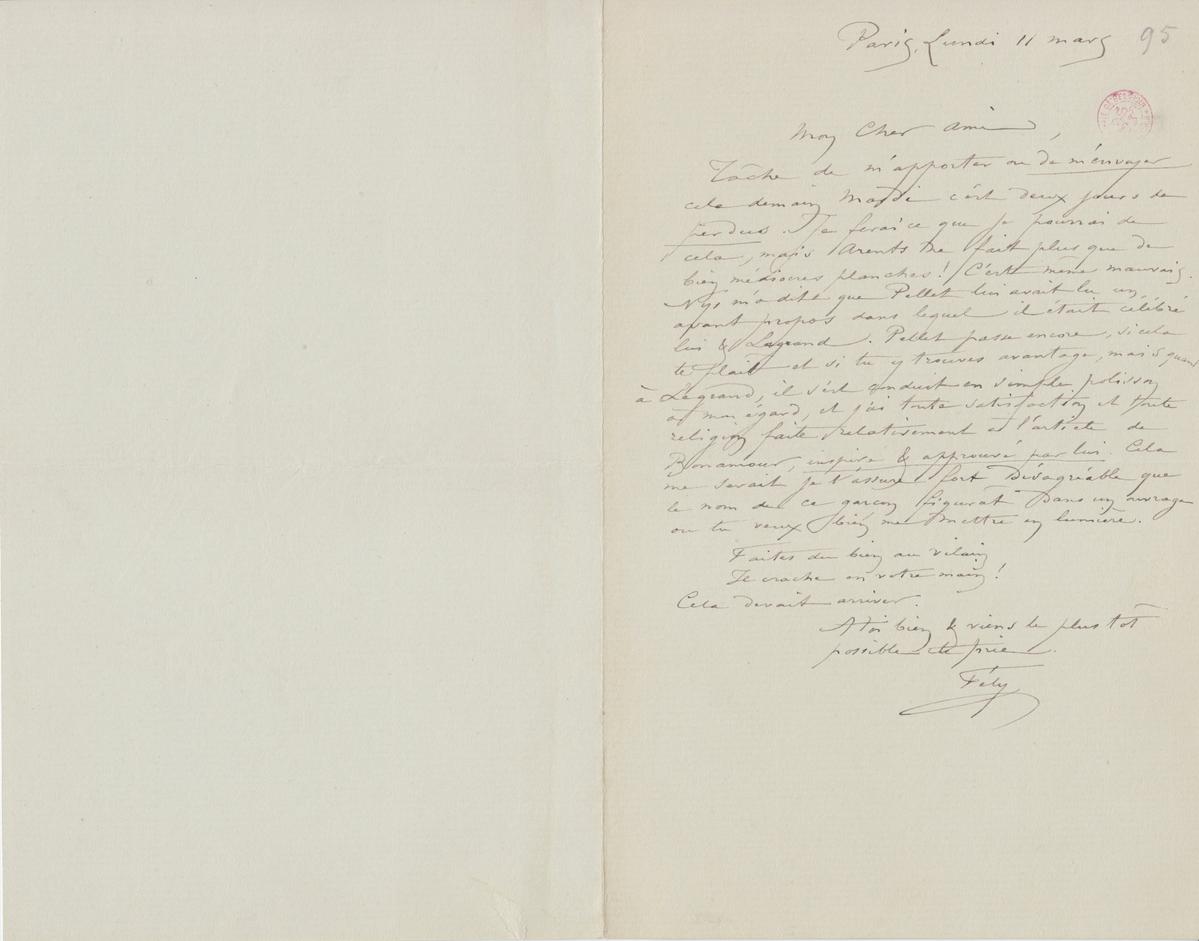 Paris, Lundi 11 mars 95
Mon Cher Ami,
Tâche de m'apporter ou de m'envoyer
cela demain Mardi c'est deux jours de
perdus. Je ferai ce que je pourrai de
cela, mais Arents ne fait plus que de
bien médiocres planches! C'est même mauvais.
Nys m'a dit que Pellet lui avait lu un
avant propos dans lequel il était célébré
lui & Legrand. Pellet passe encore, si cela
te plait et si tu y trouves avantage, mais quant
à Legrand, il s'est conduit en simple polisson
à mon égard, et j'ai toute satisfaction et toute
religion faite relativement à l'article de
Bonamour, inspiré & approuvé par lui. Cela
me serait je t'assure fort désagréable que
le nom de ce garçon figurât dans un ouvrage
ou tu veux bien me mettre en lumière.
Faites du bien au vilain
Il crache en votre main!
Cela devait arriver.
A toi bien & viens le plus tôt
possible te prie.
Fély